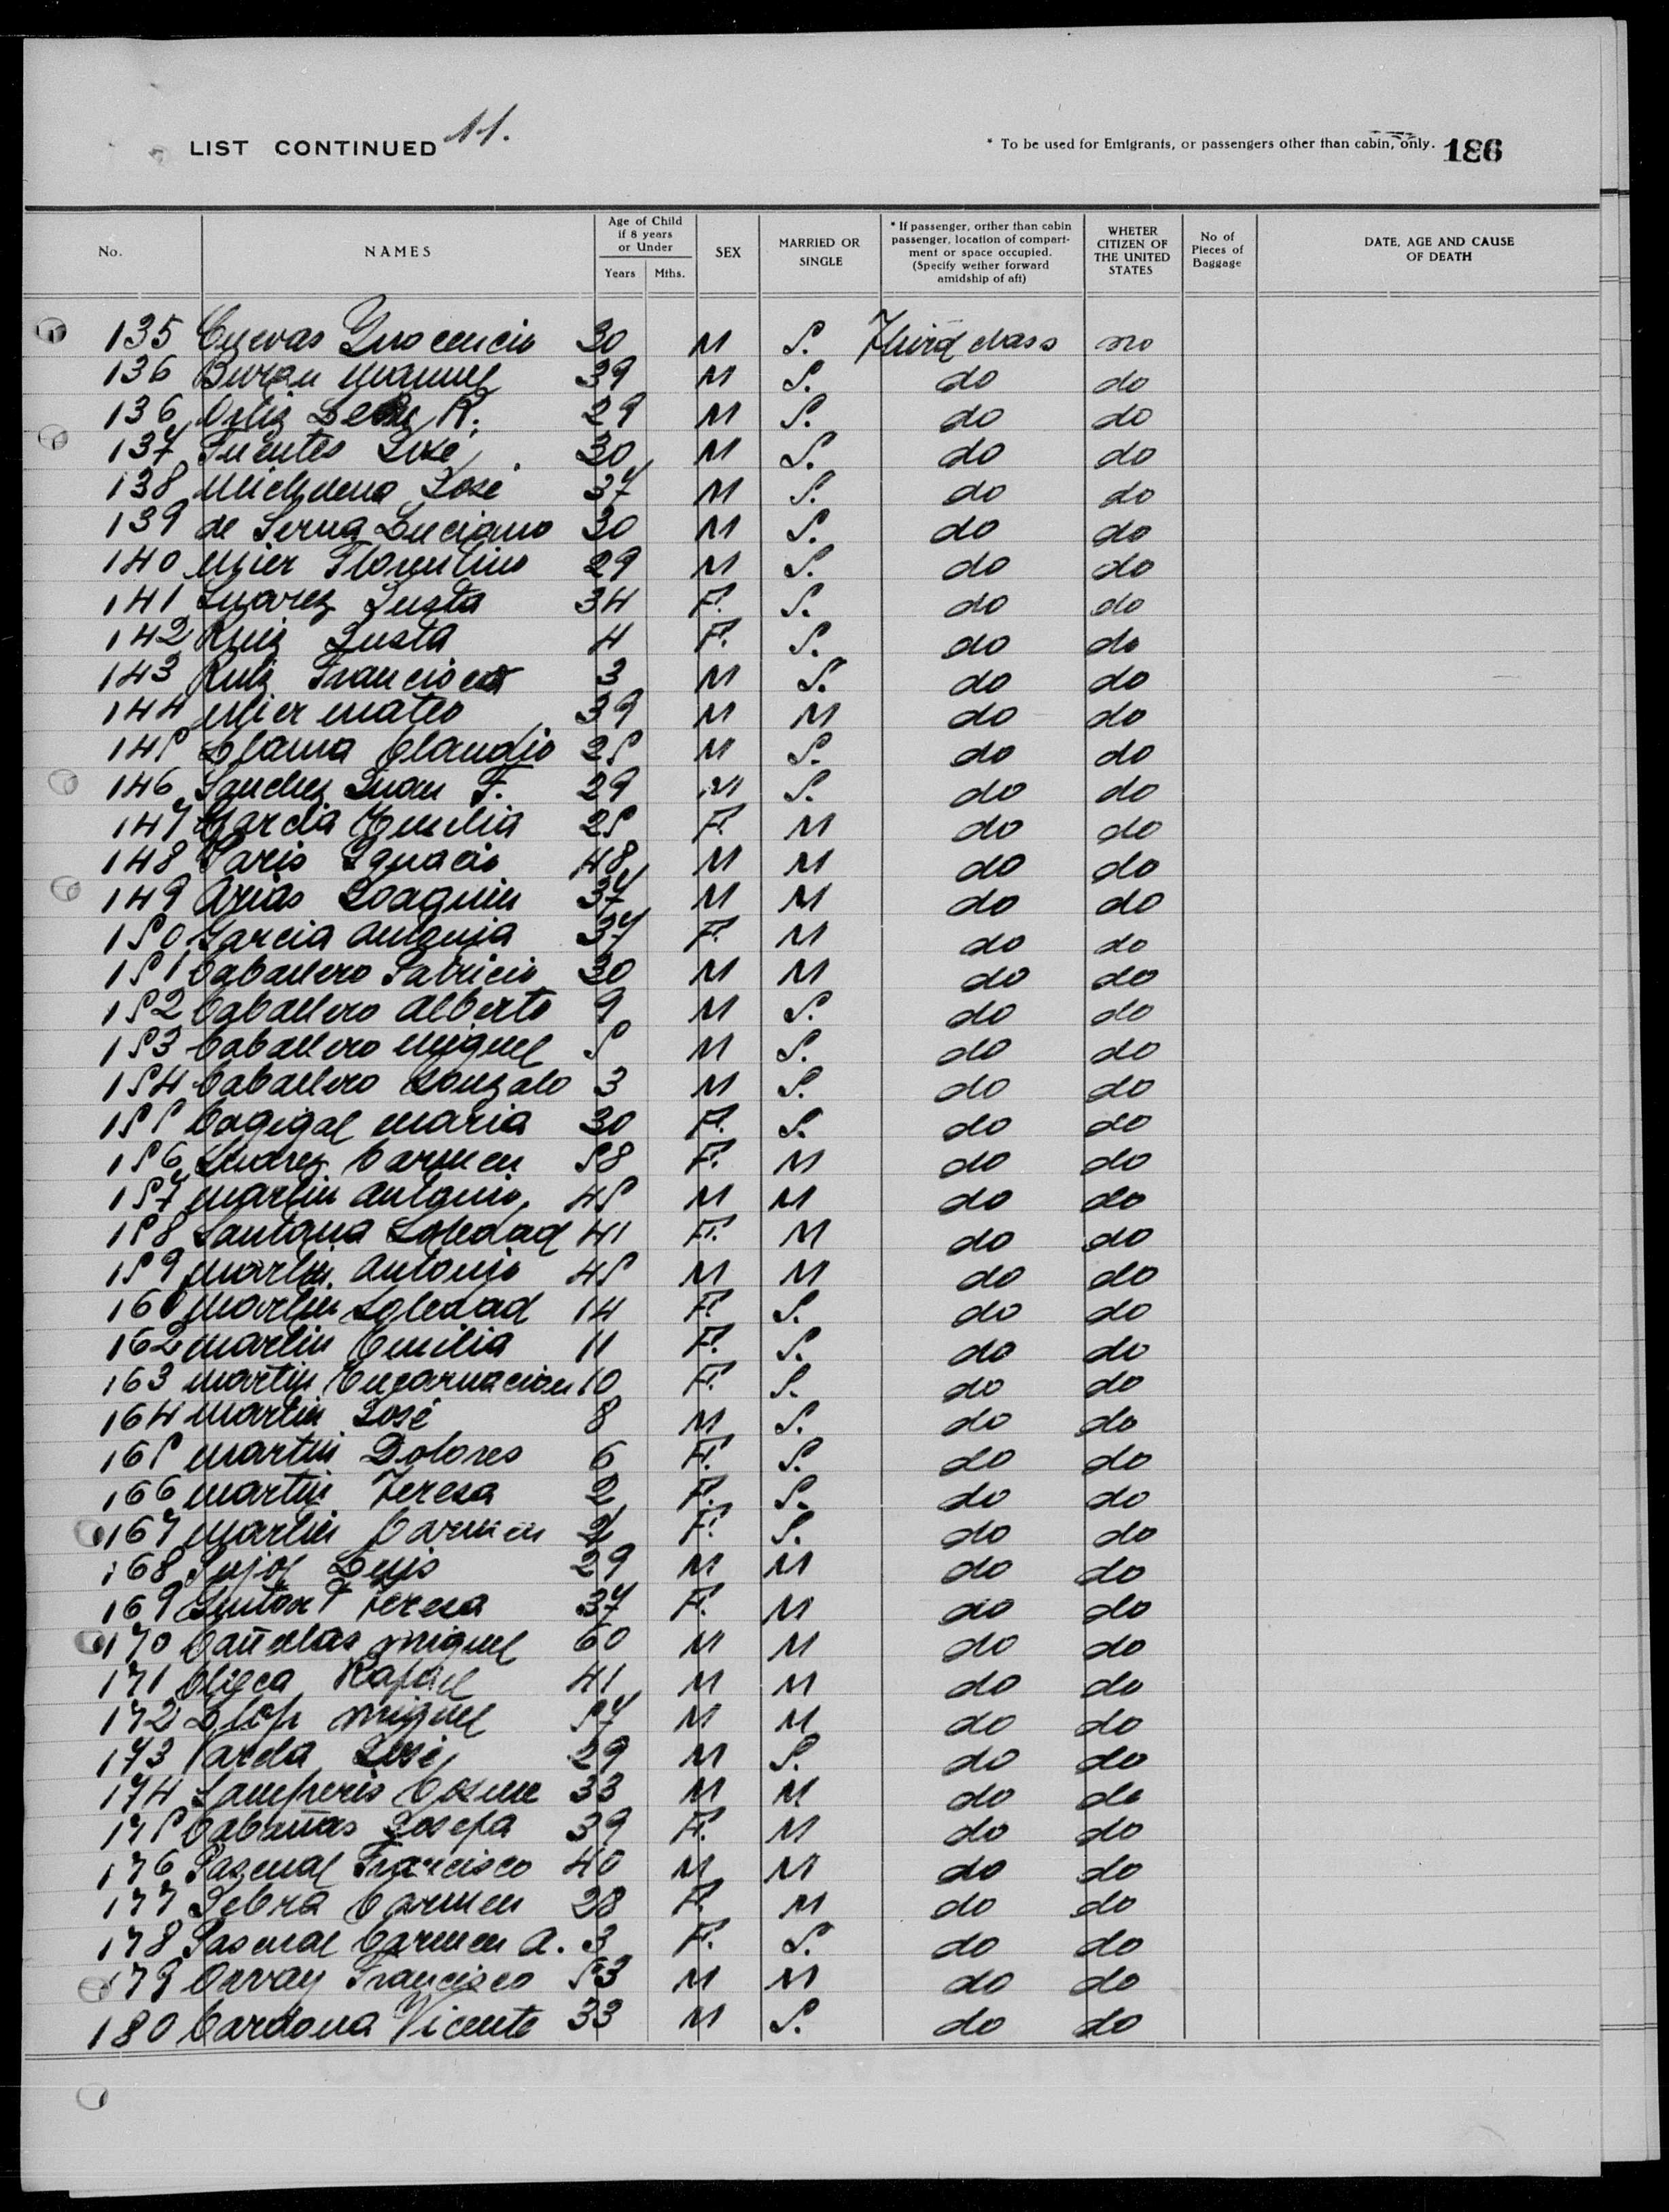 LIST CONTINUED 11.
* To be used for Emigrants, or passengers other than cabin, only. 186
No. NAMES Age of Child if 8 years or Under Years Mths. SEX MARRIED OR SINGLE * If passenger, orther than cabin passenger, location of compartment or space occupied. (Specify wether forward amidship of aft) WHETER CITIZEN OF THE UNITED STATES No of Pieces of Baggage DATE, AGE AND CAUSE OF DEATH
135 Cuevas Inocencio 30 M S. Third class no
136 Manuel 39 M S. do do
136 Ortiz R. 29 M S. do do
137 Fuentes José 30 M S. do do
138 Michelena José 37 M S. do do
139 de Serna Luciano 30 M S. do do
140 Mier Florentino 29 M S. do do
141 Suarez Justa 34 F. S. do do
142 Ruiz Justa 4 F. S. do do
143 Ruiz Francisco 3 M S. do do
144 Mier Mateo 39 M M do do
145 Llama Claudio 25 M S. do do
146 Sanchez Juan F. 29 M S. do do
147 Garcia Emilia 25 F. M do do
148 Paris Ignacio 48 M M do do
149 Arias Joaquin 37 M M do do
150 Garcia Antonia 37 F. M do do
151 Caballero Patricio 30 M M do do
152 Caballero Alberto 9 M S. do do
153 Caballero Miguel 5 M S. do do
154 Caballero Gonzalo 3 M S. do do
155 Cagigal Maria 30 F. S. do do
156 Suarez Carmen 58 F. M do do
157 Martin Antonio 45 M M do do
158 Santana Soledad 41 F. M do do
159 Martin Antonio 45 M M do do
160 Martin Soledad 14 F. S. do do
162 Martin Emilia 11 F. S. do do
163 Martin Encarnacion 10 F. S. do do
164 Martin José 8 M S. do do
165 Martin Dolores 6 F. S. do do
166 Martin Teresa 2 F. S. do do
167 Martin Carmen 2 F. S. do do
168 Pujol Luis 29 M M do do
169 Teresa 37 F. M do do
170 Cañellas Miguel 60 M M do do
171 Rafael 41 M M do do
172 Llop Miguel 57 M M do do
173 Varela José 29 M S. do do
174 Samperis Cosme 33 M M do do
175 Cabañas Josefa 39 F. M do do
176 Pascual Francisco 40 M M do do
177 Sebra Carmen 28 F. M do do
178 Pascual Carmen A. 3 F. S. do do
179 Orvay Francisco 53 M M do do
180 Cardona Vicente 33 M S. do do